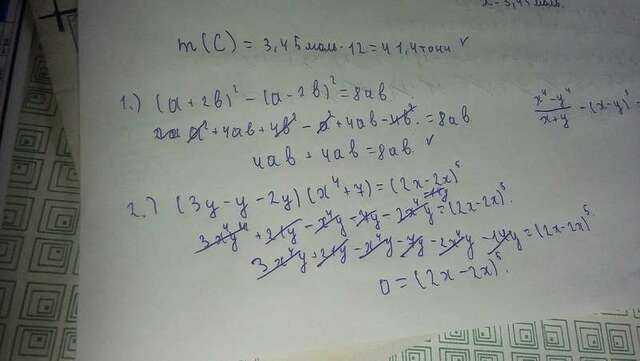 m(C) = 3,45 моль · 12 = 41,4 тонн ✓
1.) (a+2b)² - (a-2b)² = 8ab
a² + 4ab + 4b² - a² + 4ab - 4b² = 8ab
4ab + 4ab = 8ab ✓
(x⁴-y⁴)/(x+y) - (x-y)
2.) (3y - y - 2y)(x⁴+7) = (2x-2x)⁵
3x⁴y + 21y - x⁴y - 7y - 2x⁴y - 14y = (2x-2x)⁵
3x⁴y + 21y - x⁴y - 7y - 2x⁴y - 14y = (2x-2x)⁵
0 = (2x-2x)⁵.